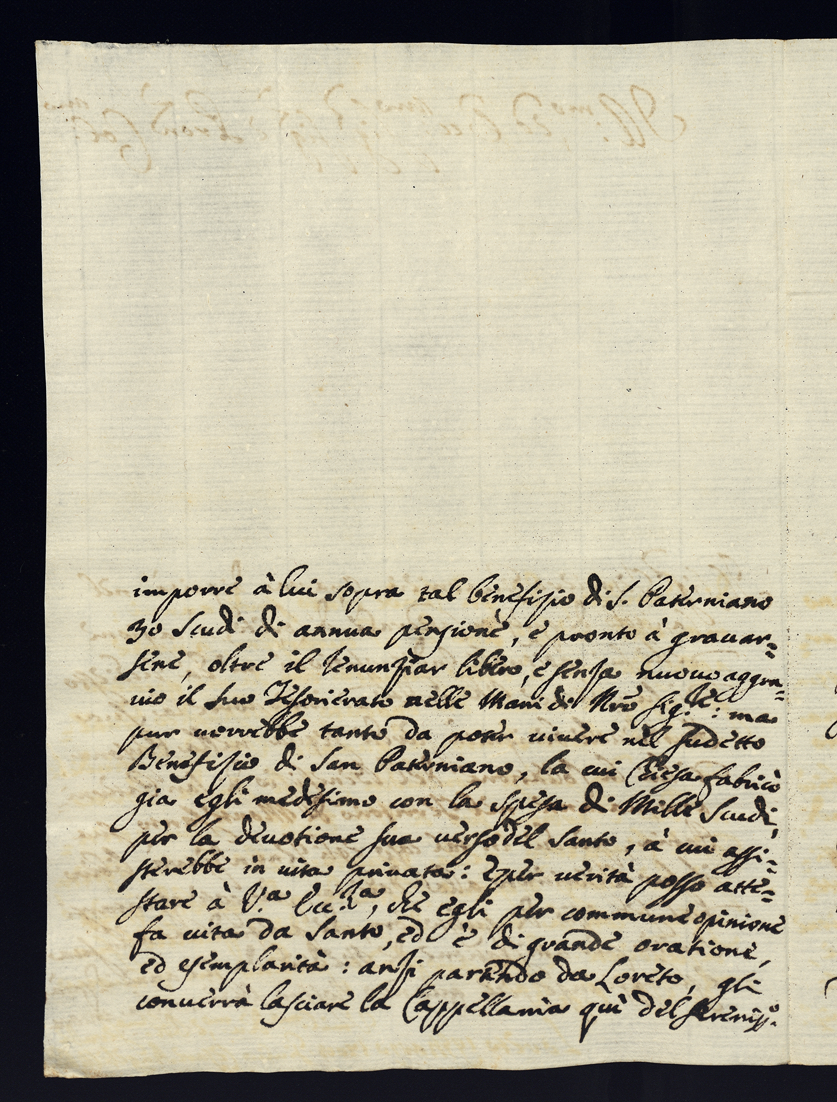 imporre à lui sopra tal benefizio di S. Paterniano
30 Scudi di annua pensione, e pronto à gravar=
sene, oltre il renunziar libero, e senza nuovo aggra=
vio il suo Tesorierato nelle Mani di Nrõ Sig.re: ma
pur vorrebbe tanto da poter vivere nel sudetto
Benefizio di San Paterniano, la cui Chiesa fabricò
gia egli medesimo con la spesa di Mille Scudi,
per la devotione sua verso del Santo, à cui assi=
sterebbe in vita privata: E per verità posso atte=
stare à V.a Ecc.za, che egli per commune opinione
fa vita da Santo, ed è di grande oratione,
ed esemplarità: anzi partendo da Loreto, gli
converrà lasciare la Cappellania quì del Sereniss.o